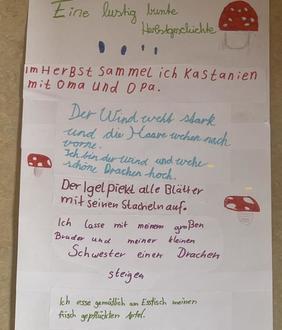 Eine lustig bunte
Herbstgeschichte
im HerBst Sammel ich Kastanien
mit Oma und Opa.
Der Wind weht stark
und die Haare wehen nach
vorne.
Ich bin der Wind und wehe
schöne Drachen hoch.
Der Igel piekt alle Blätter
mit seinen Stacheln auf.
Ich lasse mit meinem großen
Bruder und meiner kleinen
Schwester einen Drachen
steigen
Ich esse gemütlich am Esstisch meinen
frisch gepflückten Apfel.